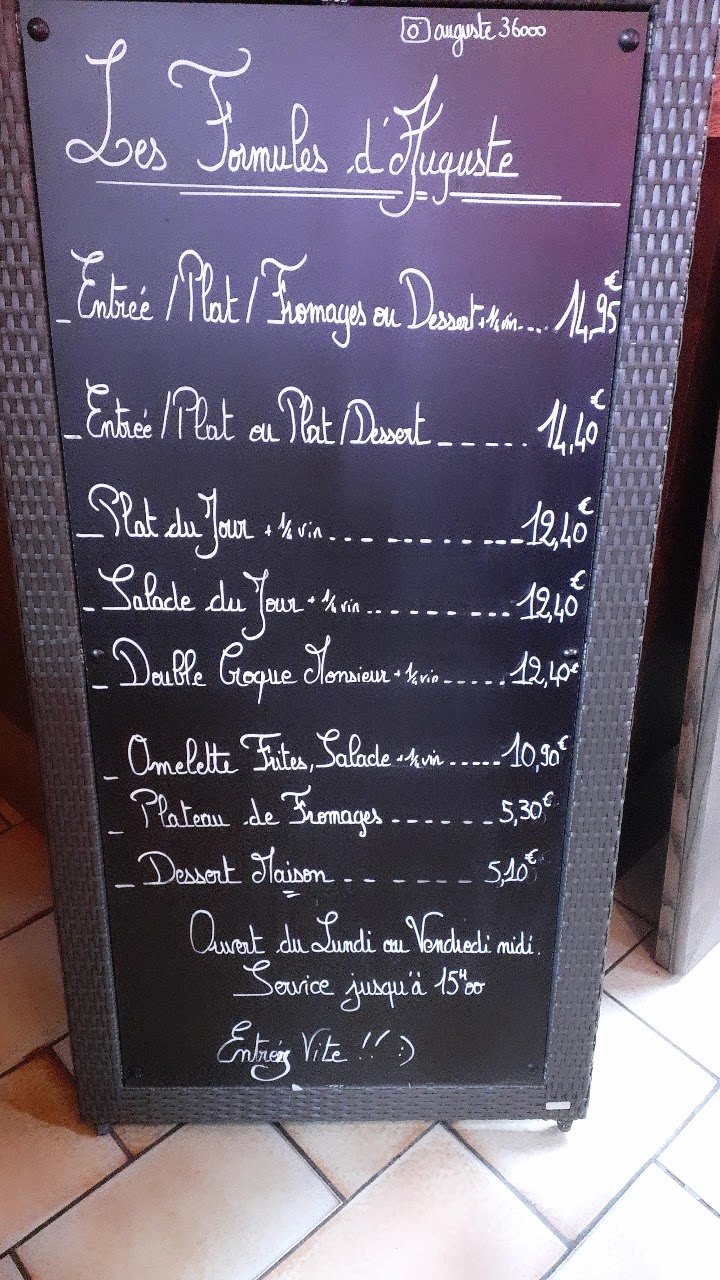 auguste 36000
Les Formules d'Auguste
_ Entrée / Plat / Fromages ou Dessert + ¼ vin.... 14,95€
_ Entrée / Plat ou Plat / Dessert _ _ _ _ _ 14,40€
_ Plat du Jour + ¼ vin... _ _ _ _ _ _ _ 12,40€
_ Salade du Jour + ¼ vin... _ _ _ _ _ ... 12,40€
_ Double Croque Monsieur + ¼ vin ..... 12,40€
_ Omelette Frites, Salade + ¼ vin ..... 10,90€
_ Plateau de Fromages _ _ _ _ _ _ _ 5,30€
_ Dessert Maison _ _ _ _ _ _ _ 5,10€
Ouvert du Lundi au Vendredi midi.
Service jusqu'à 15H00
Entrez Vite !! :)